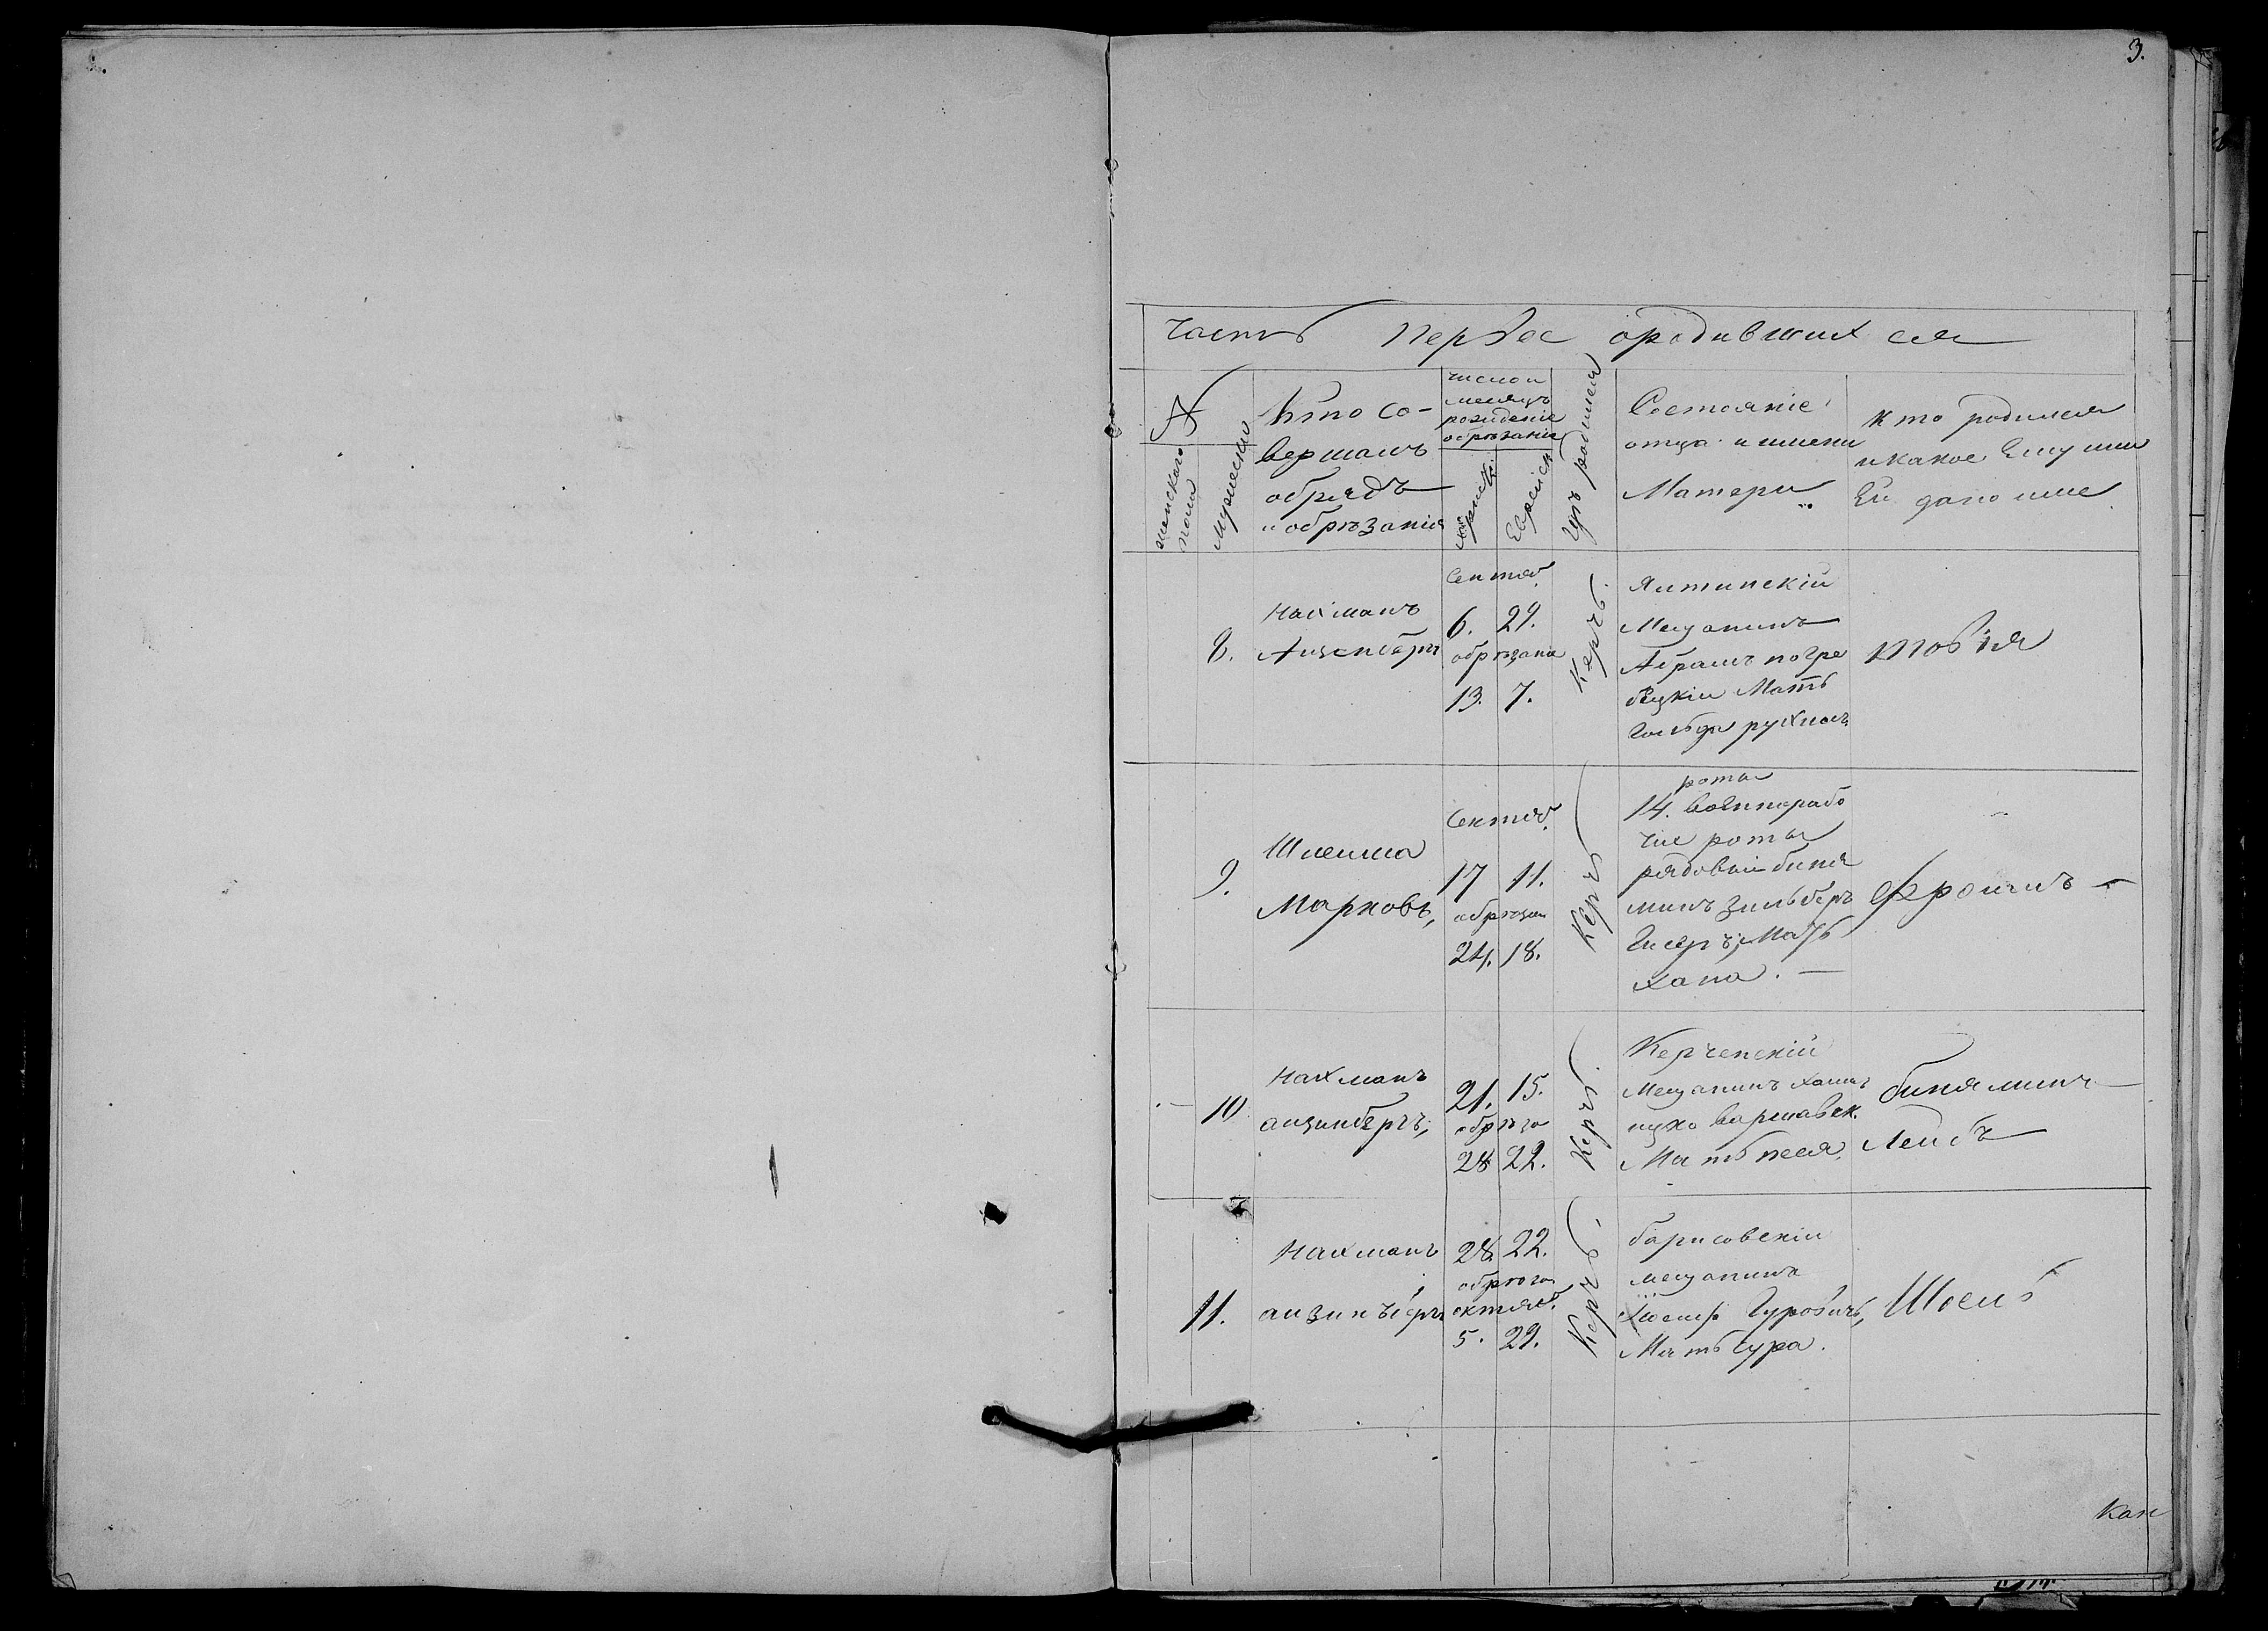 3.
часть первая ородившихся
№
женскаго пола
Мужеско
Кто со-
вершалъ
обрядъ
и обрѣзанія
число и
месяцъ
рождение
обрѣзаніе
Христ:
Еврейск
Гдѣ родился
Состояніе
отца и имени
Матери
кто родился
и какое Ему или
Ей дано имя
8.
Нахманъ
Айзенбергъ
Сентяб.
6. 29.
обрѣзана
13. 7.
Керчь.
Ялтинскій
Мещанинъ
Абрамъ погре
бецкій Мать
Гольда рухль
товия
9.
Шлеима
Марковъ,
Сентяб.
17 11.
обрѣзан
24. 18.
Керчь
роты
14. военнорабо
чие роты
рядовый биня
минъ зильбер
Мать
хана. —
Фроимъ —
10
Нахманъ
анзинбергъ,
21. 15.
обрѣза
28 22.
Керчь.
Керченскій
Мещанинъ хаимъ
ицко варшавск.
Мать песя.
биняминъ
Лейбъ
11.
Нахманъ
анзинбергъ
28. 22.
обрѣза
октяб.
5. 29.
Керчь.
барисовскій
мещанинъ
Иосифъ Гуровичъ,
Мать Сура.
Кон